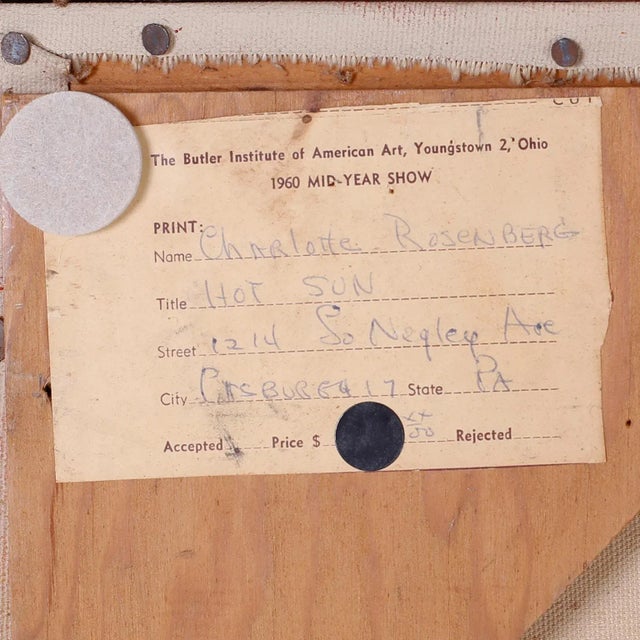 The Butler Institute of American Art, Youngstown 2, Ohio
1960 MID-YEAR SHOW
PRINT:
Name Charlotte Rosenberg
Title HOT SUN
Street 1214 So Negley Ave
City Pittsburgh 17 State PA
Accepted Price $ xx/00 Rejected